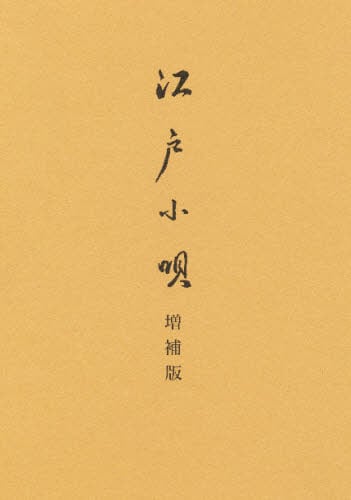 江戸小唄
増補版